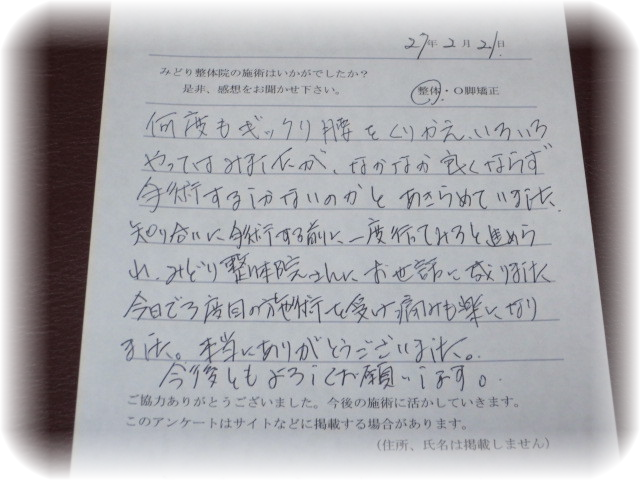 27年2月21日
みどり整体院の施術はいかがでしたか？
是非、感想をお聞かせ下さい。
整体・O脚矯正
何度もギックリ腰をくりかえ、いろいろ
やってはみましたが、なかなか良くならず
手術するしかないのかと あきらめていました。
知り合いに手術する前に、一度行ってみろと進めら
れ、みどり整体院さんに お世話に成りました
今日で3度目の施術を受け痛みも楽になり
ました。本当にありがとうございました。
今後ともよろしくお願いします。
ご協力ありがとうございました。今後の施術に活かしていきます。
このアンケートはサイトなどに掲載する場合があります。
（住所、氏名は掲載しません）